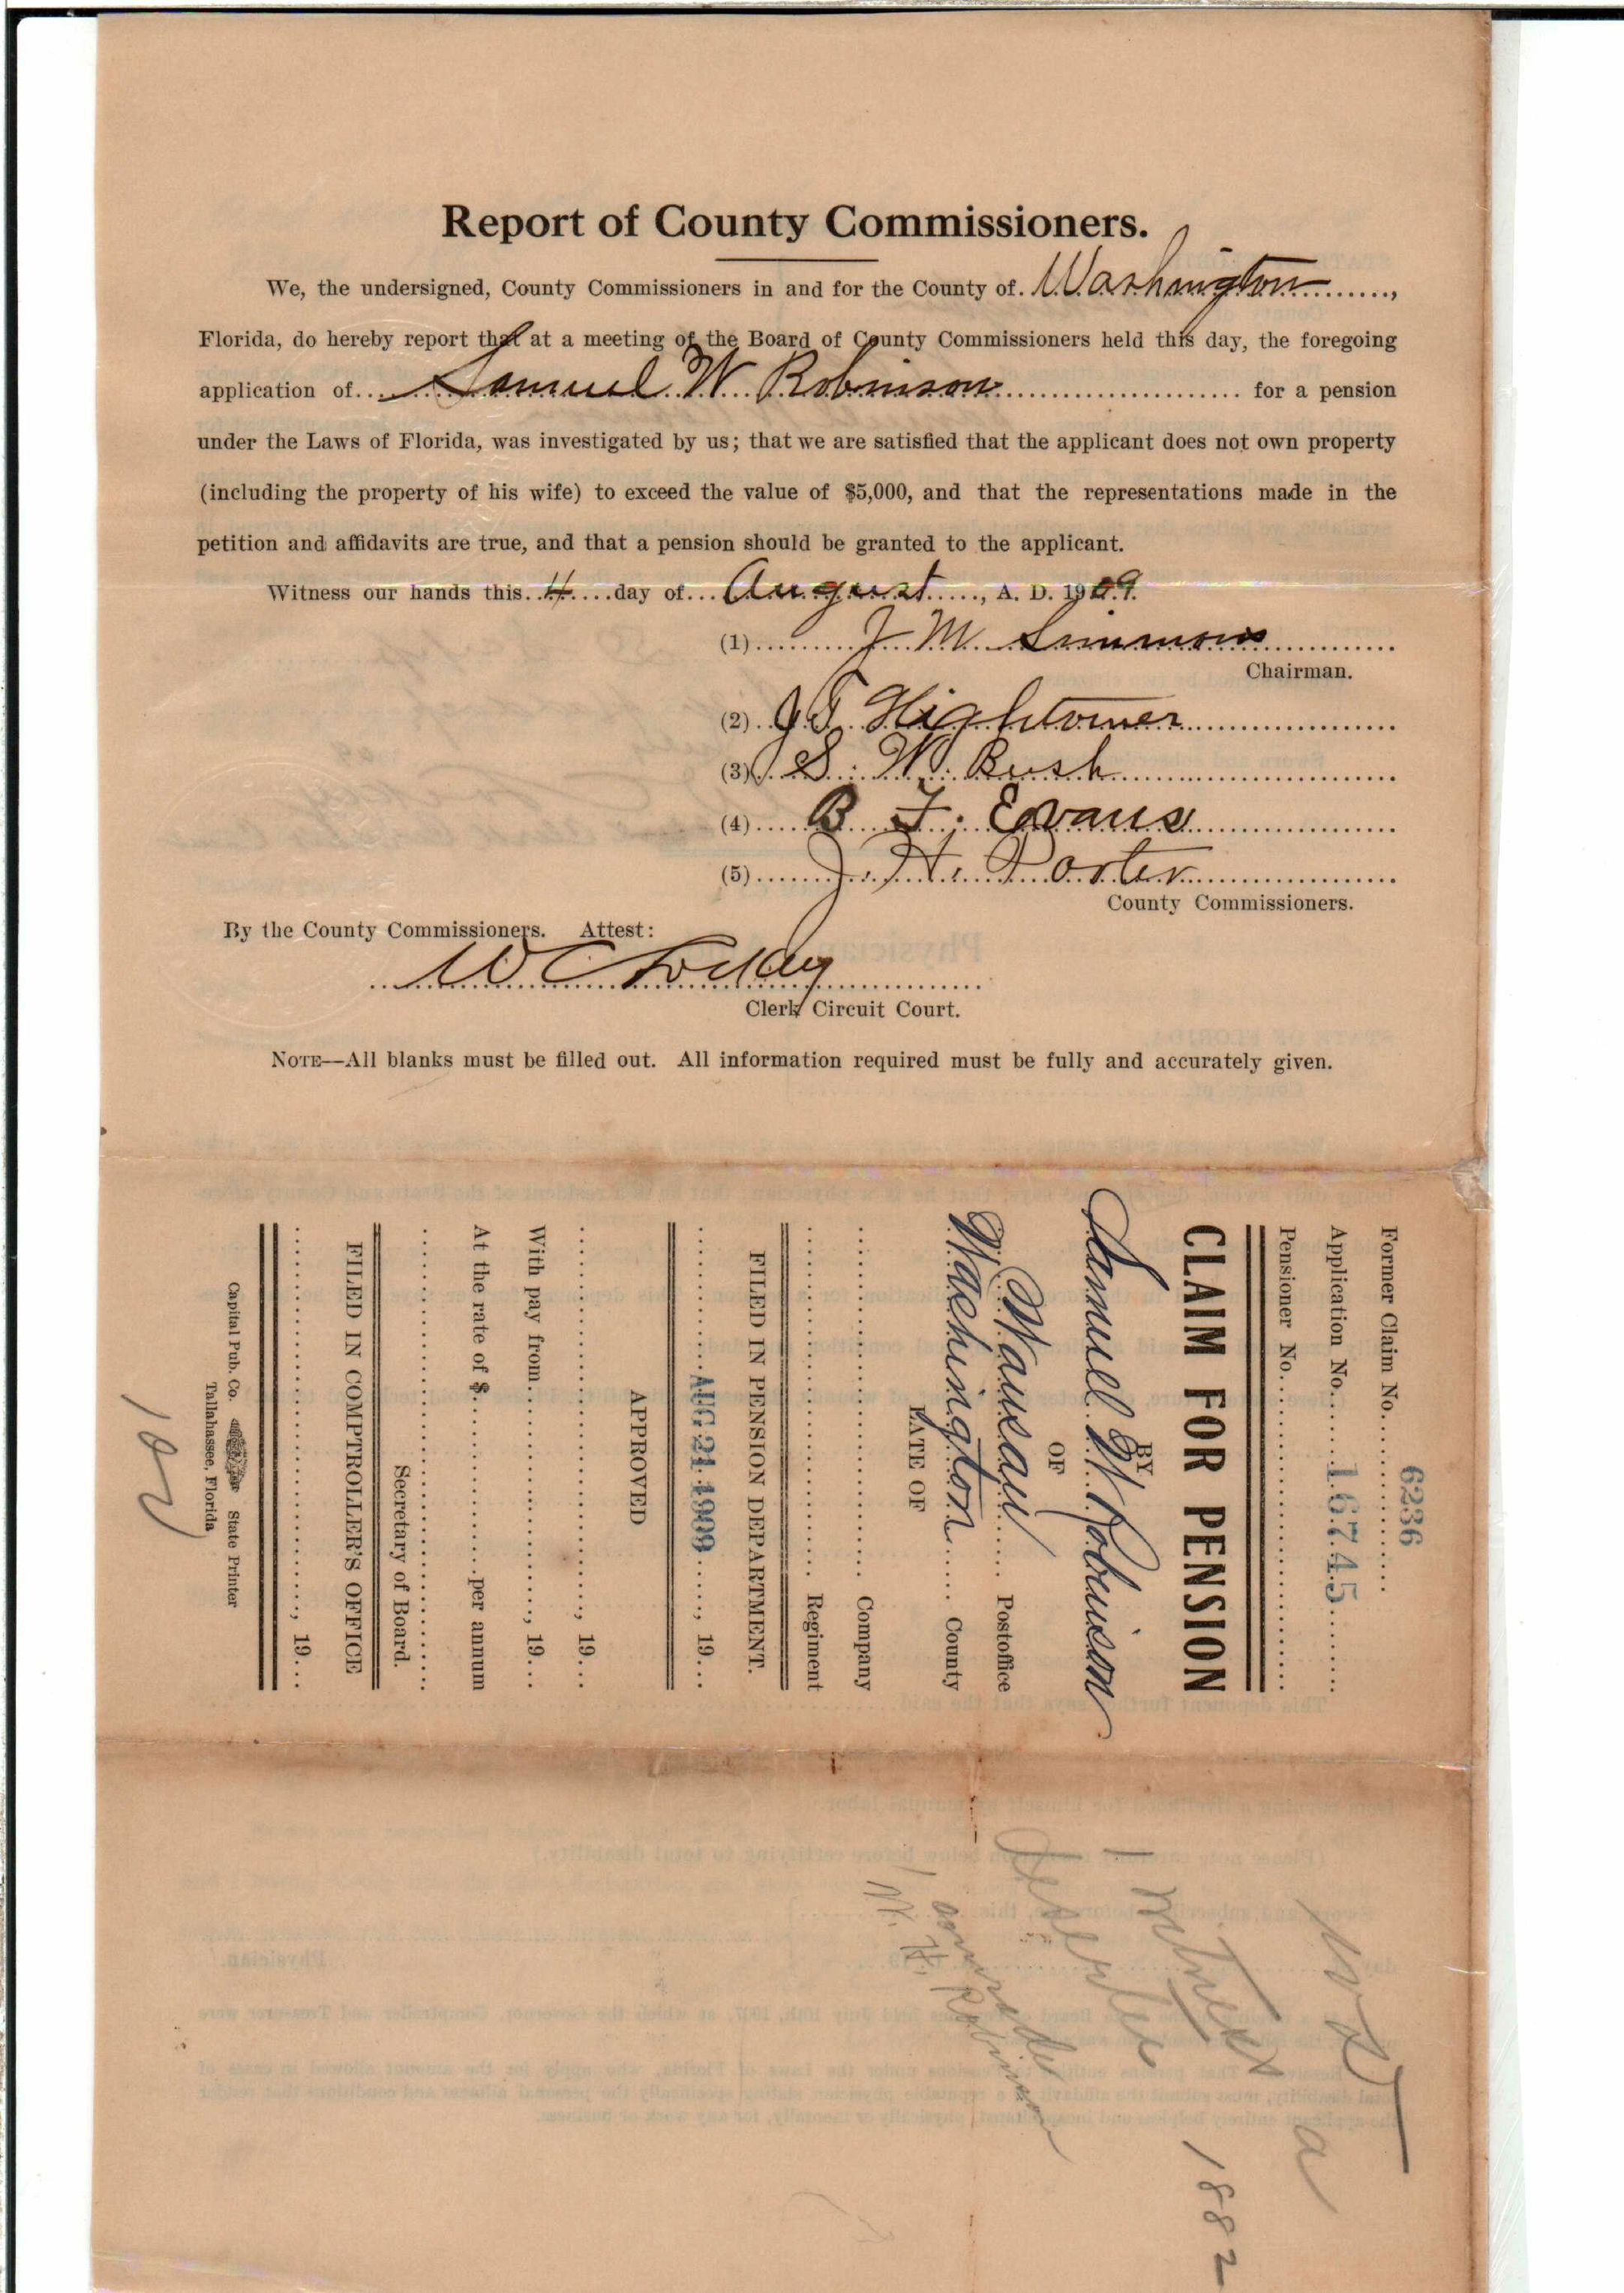 Report of County Commissioners.
We, the undersigned, County Commissioners in and for the County of Washington,
Florida, do hereby report that at a meeting of the Board of County Commissioners held this day, the foregoing
application of Samuel W Robinson for a pension
under the Laws of Florida, was investigated by us; that we are satisfied that the applicant does not own property
(including the property of his wife) to exceed the value of $5,000, and that the representations made in the
petition and affidavits are true, and that a pension should be granted to the applicant.
Witness our hands this 4 day of August, A. D. 1909.
(1) J M Simmons
Chairman.
(2) J T Hightower
(3) S. W. Bush
(4) B F. Evans
(5) J. H. Porter
County Commissioners.
By the County Commissioners. Attest:
W C Lockey
Clerk Circuit Court.
NOTE—All blanks must be filled out. All information required must be fully and accurately given.
6236
Former Claim No.
Application No. 16745
Pensioner No.
CLAIM FOR PENSION
BY
Samuel W Robinson
OF
Wausau Postoffice
Washington County
LATE OF
Company
Regiment
FILED IN PENSION DEPARTMENT.
AUG 21 1909, 19
APPROVED
, 19
With pay from, 19
At the rate of $ per annum
Secretary of Board.
FILED IN COMPTROLLER'S OFFICE
, 19
Capital Pub. Co. State Printer
Tallahassee, Florida
a
1882
1 witness
comrade
W. H. Robinson